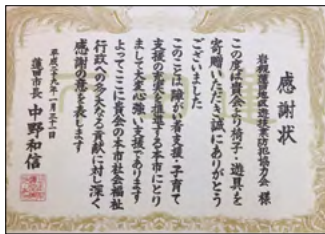 感謝状
岩槻蓮田地区遊技業防犯協力会 様
この度は貴会より椅子・遊具を
寄贈いただき誠にありがとう
ございました
このことは障がい者支援・子育て
支援の充実を推進する本市にとり
まして大変心強い支援であります
よってここに貴会の本市社会福祉
行政への多大なる貢献に対し深く
感謝の意を表します
平成二十九年一月三十一日
蓮田市長 中野和信